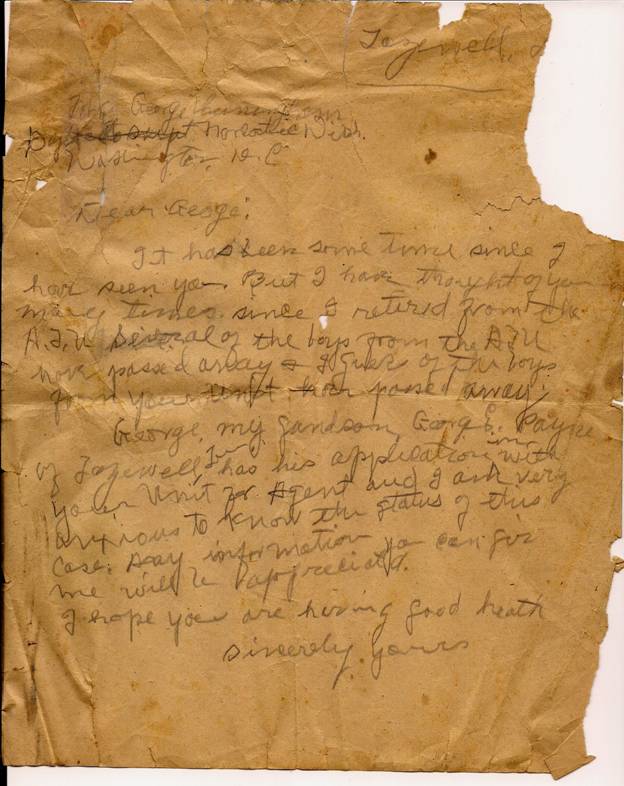 Tazewell,
George
Narcotic Div.
Washington, D.C
Dear George:
It has been some time since I
have seen you. But I have thought of you
many times since I retired from the
A.T.U Several of the boys from the ATU
have passed away & I guess of the boys
from your Unit have passed away.
George, my gandson, George E. Payne
of Tazewell, has his application in with
your Unit for Agent and I am very
anxious to know the status of this
case. Any information you can give
me will be appreciated.
I hope you are having good heath
Sincerely yours